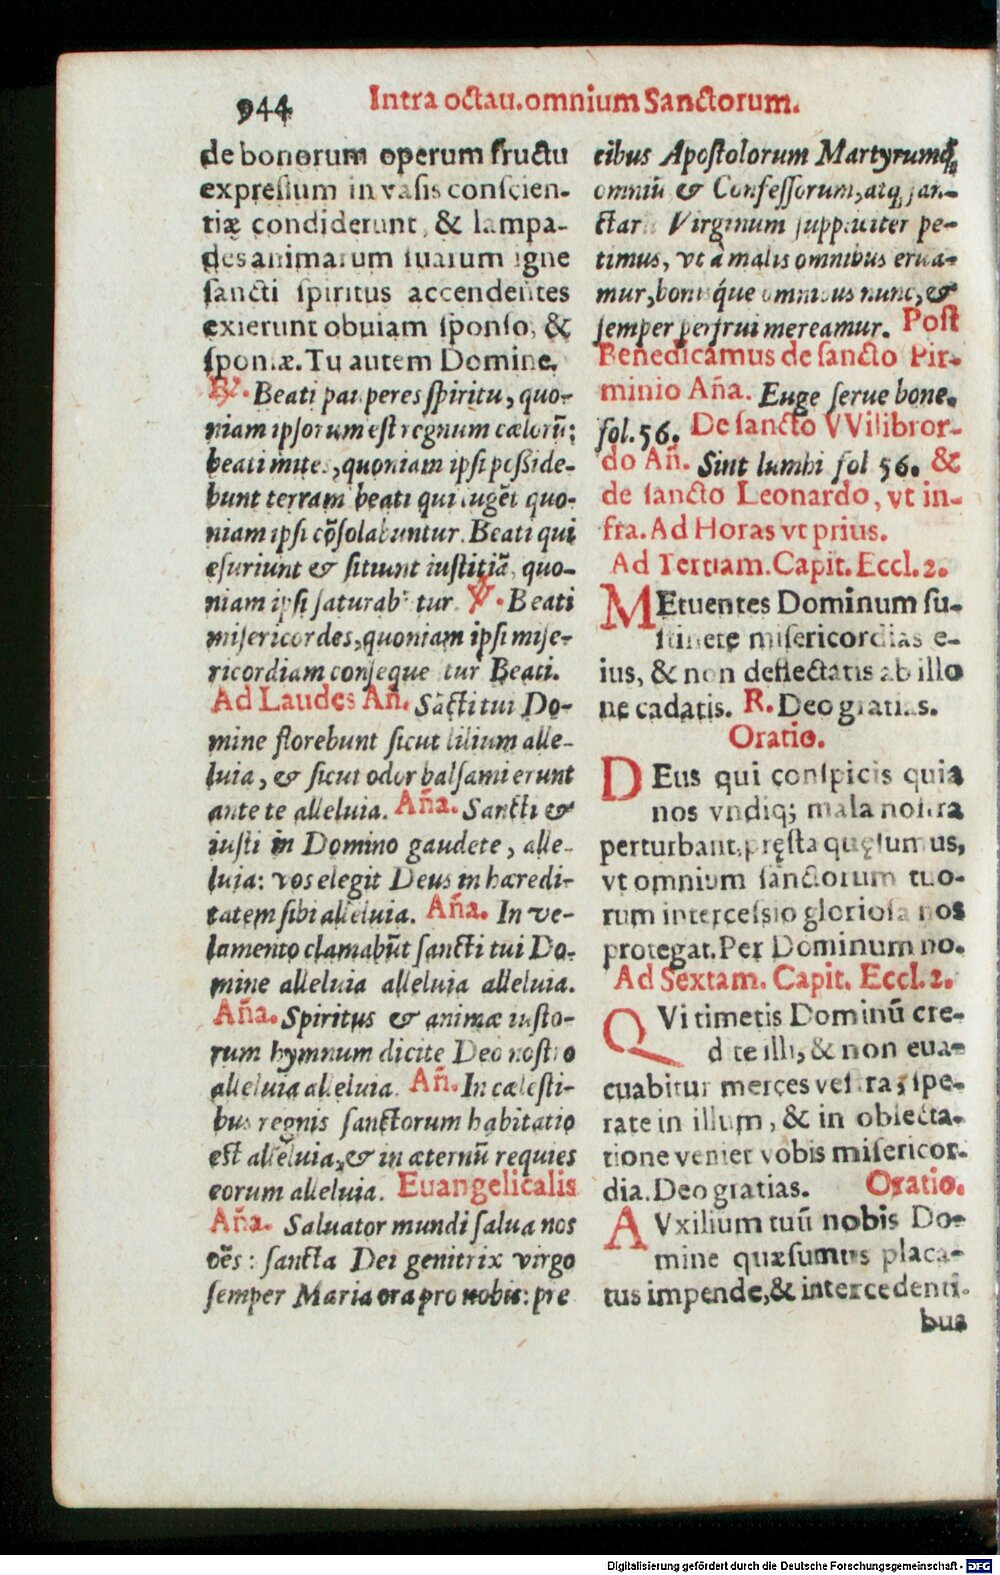 944
Intra octau.omnium Sanctorum.
de bonorum operum fructu
expressum in vasis conscien-
tiæ condiderunt, & lampa-
des animarum suarum igne
sancti spiritus accendentes
exierunt obuiam sponso, &
sponsæ. Tu autem Domine.
℟. Beati pauperes spiritu, quo-
niam ipsorum est regnum cælorũ:
beati mites, quoniam ipsi posside-
bunt terram beati qui lugẽt quo-
niam ipsi cõsolabuntur. Beati qui
esuriunt & sitiunt iustitiã, quo-
niam ipsi saturabũtur ℣. Beati
misericordes, quoniam ipsi mise-
ricordiam consequentur Beati.
Ad Laudes Añ. Sãcti tui Do-
mine florebunt sicut lilium alle-
luia, & sicut odor balsami erunt
ante te alleluia. Aña. Sancti &
iusti in Domino gaudete, alle-
luia: vos elegit Deus in hæredi-
tatem sibi alleluia. Aña. In ve-
lamento clamabũt sancti tui Do-
mine alleluia alleluia alleluia.
Aña. Spiritus & animæ iusto-
rum hymnum dicite Deo nostro
alleluia alleluia. Añ. In cælesti-
bus regnis sanctorum habitatio
est alleluia, & in æternũ requies
eorum alleluia. Euangelicalis
Aña. Saluator mundi salua nos
oẽs: sancta Dei genitrix virgo
semper Maria ora pro nobis: pre
cibus Apostolorum Martyrumq́;
omniũ & Confessorum, atq; san-
ctarũ Virginum suppliciter pe-
timus, vt à malis omnibus erua-
mur, bonisque omnibus nunc, &
semper perfrui mereamur. Post
Benedicamus de sancto Pir-
minio Aña. Euge serue bone.
fol. 56. De sancto VVilibror-
do Añ. Sint lumbi fol 56. &
de sancto Leonardo, vt in-
fra. Ad Horas vt prius.
Ad Tertiam. Capit. Eccl. 2.
MEtuentes Dominum su-
stinete misericordias e-
ius, & non deflectatis ab illo
ne cadatis. R. Deo gratias.
Oratio.
DEus qui conspicis quia
nos vndiq; mala nostra
perturbant, pręsta quęsumus,
vt omnium sanctorum tuo-
rum intercessio gloriosa nos
protegat. Per Dominum no.
Ad Sextam. Capit. Eccl. 2.
QVi timetis Dominũ cre-
dite illi, & non eua-
cuabitur merces vestra; spe-
rate in illum, & in oblecta-
tione veniet vobis misericor-
dia. Deo gratias. Oratio.
AVxilium tuũ nobis Do-
mine quæsumus placa-
tus impende, & intercedenti-
bus
Digitalisierung gefördert durch die Deutsche Forschungsgemeinschaft - DFG